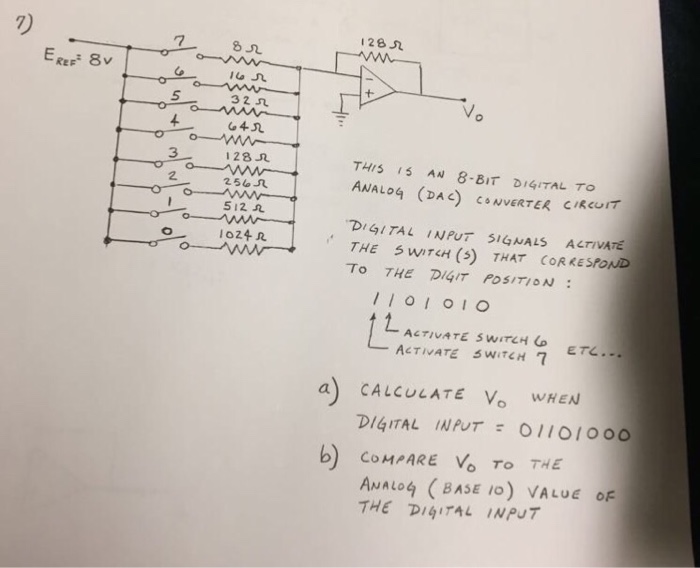 7)
E REF = 8V
7
8Ω
6
16Ω
5
32Ω
4
64Ω
3
128Ω
2
256Ω
1
512Ω
0
1024Ω
128Ω
-
+
Vo
THIS IS AN 8-BIT DIGITAL TO
ANALOG (DAC) CONVERTER CIRCUIT
DIGITAL INPUT SIGNALS ACTIVATE
THE SWITCH(S) THAT CORRESPOND
TO THE DIGIT POSITION :
1101010
ACTIVATE SWITCH 6 ETC...
ACTIVATE SWITCH 7
a) CALCULATE Vo WHEN
DIGITAL INPUT = 01101000
b) COMPARE Vo TO THE
ANALOG (BASE 10) VALUE OF
THE DIGITAL INPUT